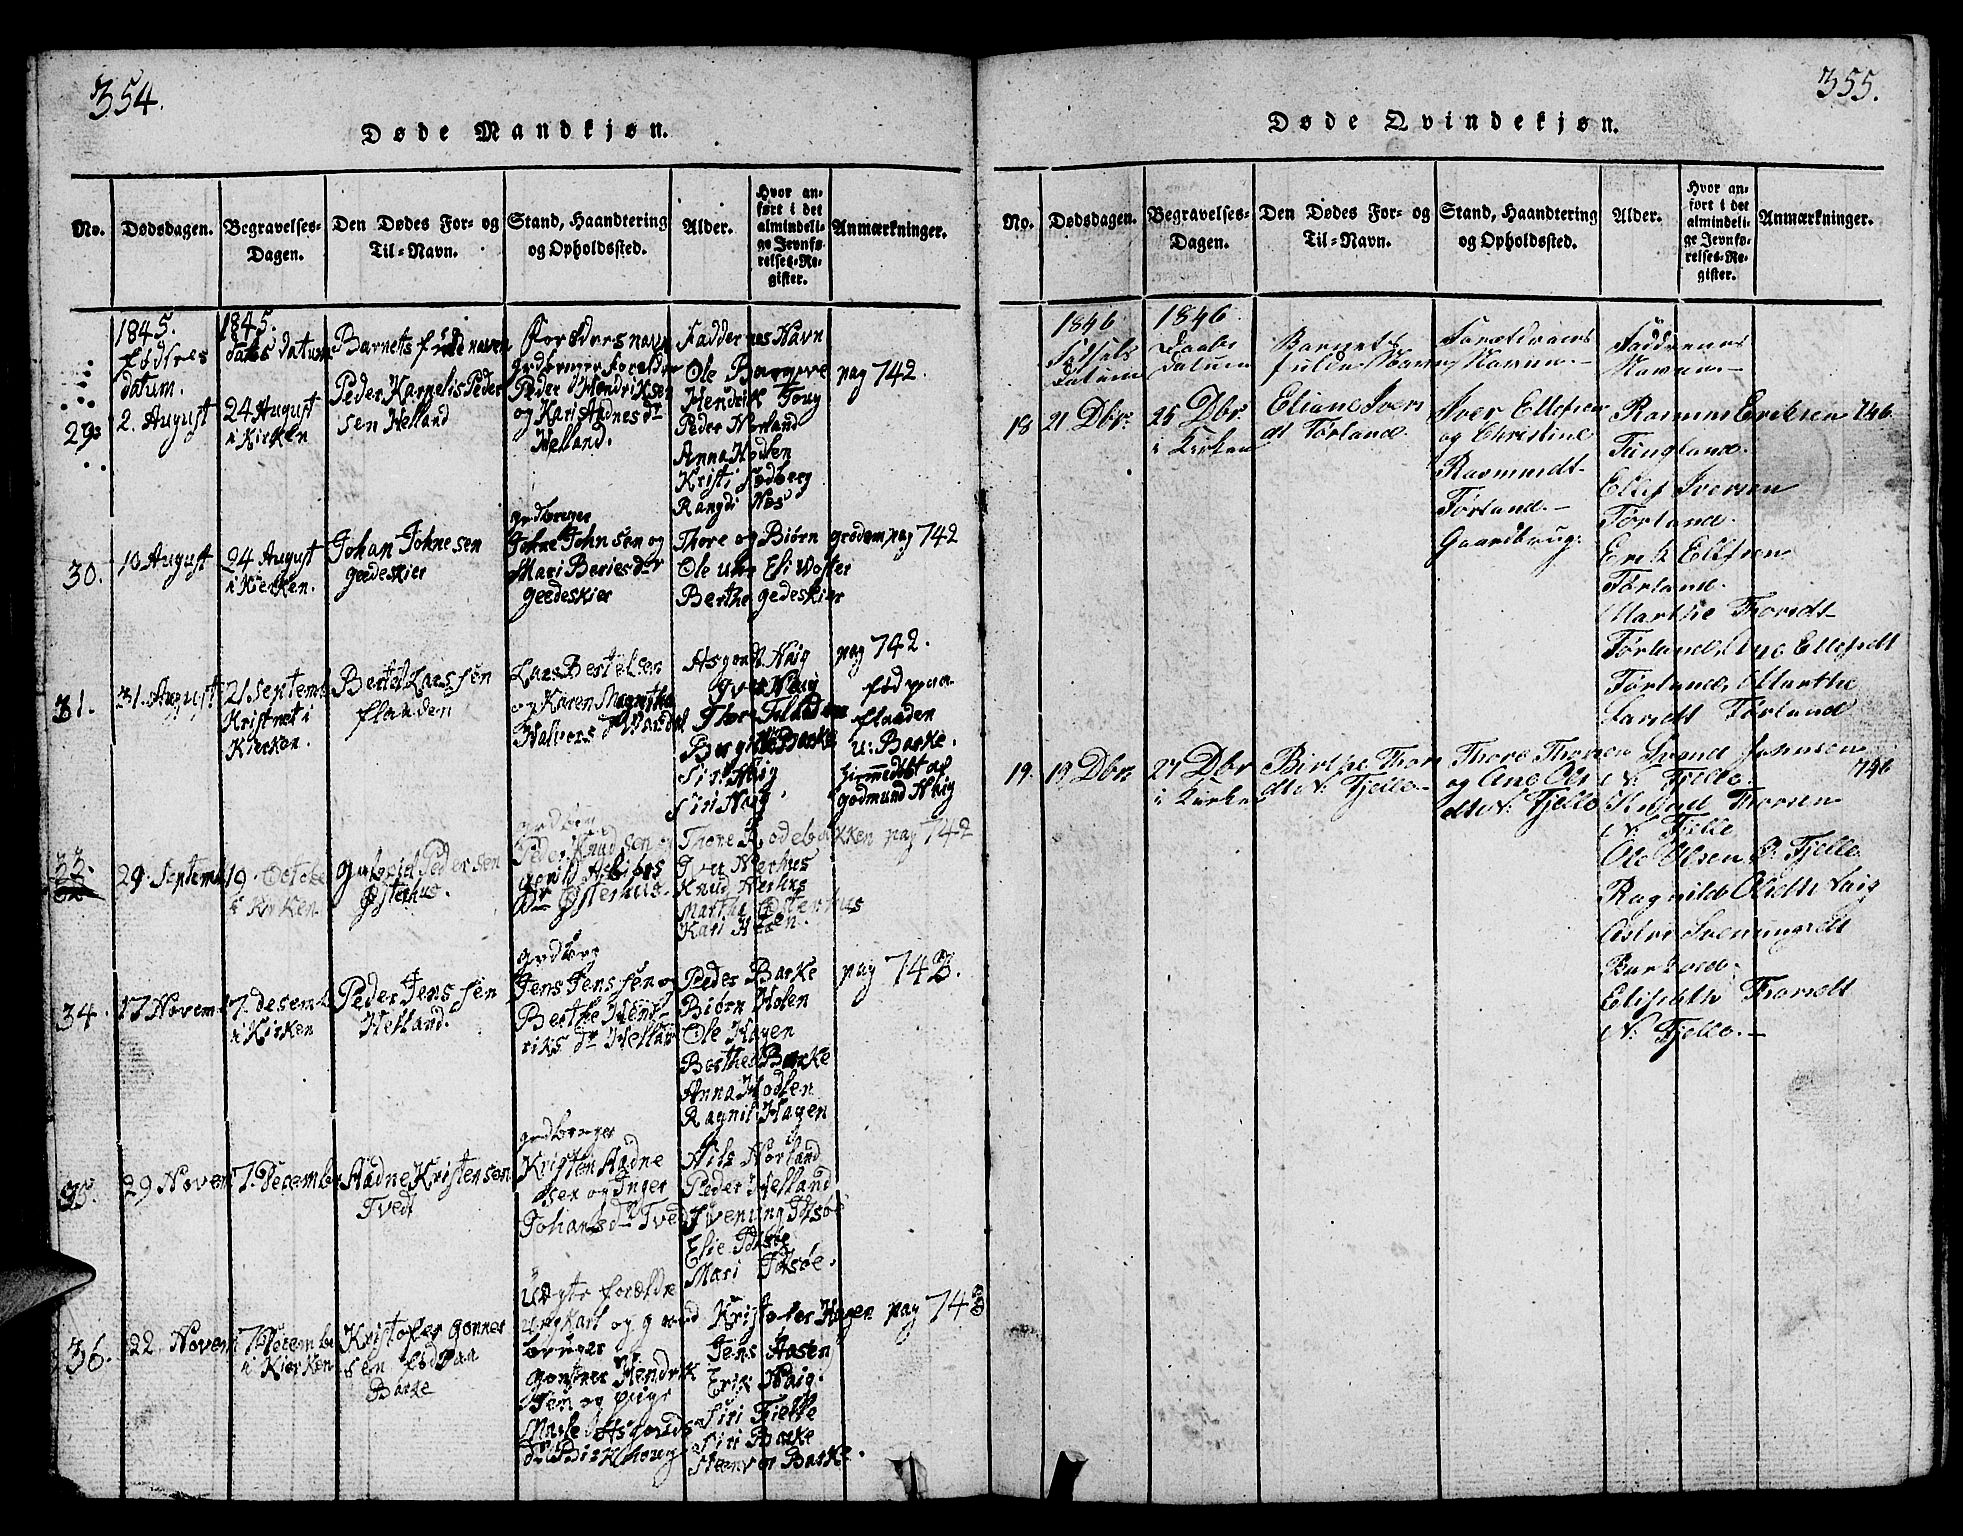 354.
Døde Mandkjøn.
No.
Dødsdagen.
Begravelses-
Dagen.
Den Dødes For- og
Til-Navn.
Stand, Haandtering
og Opholdssted.
Alder.
Hvor an-
ført i det
almindeli-
ge Jevnfø-
relses-Re-
gister.
Anmærkninger.
1845.
fødsels
datum.
1845.
Daabs datum
Barnets fulde navn
Forældres navn
Faddernes Navn
29
2. August
24 August
i Kirken
Peder Karnelis Peder
sen Helland
grdbruger Forældre
Peder Hendriksen
og Kari Aadnes dr
Helland.
Ole Barque
Hendrik Joug
Peder Norland
Anna Hodlen
Kristi Sødberg
Rangdi Nes
pag 742.
30.
10 August
24 August
i Kierken.
Johan Johnesen
geedeskier
gordbruger
Johne Johnsen og
Mari Beries dr
geedeskier
Thore og Biørn grødem pag 742
Ole Elsi Woster
Berthe gedeskier
31.
31. August
21 Septemb
Kristnet i
Kierken.
Bertel Larssen
flaaden
Lars Bertelsen
og Karen Magretha
Halvors dr
Asgond Haig
Iver Haig
Thore
Bergitte Barke
Siri Haig
Siri Haig.
pag 742.
fød paa
flaaden
u: Barke.
hiemedøbt af
godmund Haig
33.
29. Septemb
19. October
i Kirken
Gabriel Pedersen
Østerhus.
gordbrug
Peder Knudsen og
gunild Asbiørs
dr Østerhus.
Thore Rodebakken pag 742
Iver Nerhus
Knud Nerhus
Martha Østerhus
Kari Hoen.
34.
17 Novem
7. desemb
i Kirken
Peder Jenssen
Helland.
gordbrug
Jens Jenssen og
Berthe Hent
riks dr Helland
Peder Barke
Biørn Holen
Ole Hagen
Berthe Barke
Anna Hodlen
Ragnil Hagen
pag 743.
35.
29 Novem
7. December
Aadne Kristensen
Tvedt
gordbruger
Kristen Aadne
sen og Inger
Johans dr Tvedt
Nils Norland
Peder Helland
Svenung Idsøe
Elie Idsøe
Mari Idsøe.
36.
22. Novem
7 December
i Kierken
Kristofer gonner
sen fød paa
Barke
Uægte forældre
ungkarl og
gonner Hendrik
sen og pige
Marte Asgouds
dr Birkehoug
Kristofer Hagen pag 743
Jens Aasen
Erik Haig.
Siri Fielle
Siri Barke
Steenver Barke.
355.
Døde Qvindekjøn.
No.
Dødsdagen.
Begravelses-
Dagen.
Den Dødes For- og
Til-Navn.
Stand, Haandtering
og Opholdssted.
Alder.
Hvor an-
ført i det
almindeli-
ge Jevnfø-
relses-Re-
gister.
Anmærkninger.
1846
Fødsels
Datum
1846
Daabs
Datum
Barnets
fulde Navn
Forældrenes
Navne.
Faddernes
Navne.
18
21 Dbr.
25 Dbr
i Kirken
Eliane Ivers
dt Tørland.
Iver Ellefsen
og Christine
Rasmusdt
Tørland.
Gaardbrug:
Rasmus Eriksen 746
Tungland.
Ellef Iversen
Tørland.
Erik Ellefsen
Tørland.
Marthe Thorsdt
Tørland, Ane Ellefsdt
Tørland, Marthe
Larsdt Tørland
19.
19 Dbr.
27 Dbr
i Kirken
Birthe Thor
dt N. Fjelle.
Thore Thorsen
og Ane Ols
dt N. Fjelle
Svend Johnsen
N. Fjelle. 746
Thorsen
N. Fjelle
Ole Olsen Ø. Fjelle
Ragnilde Olsdt Haig
Astri Svenungsdt
Elisabeth Thorsdt
N. Fjelle.